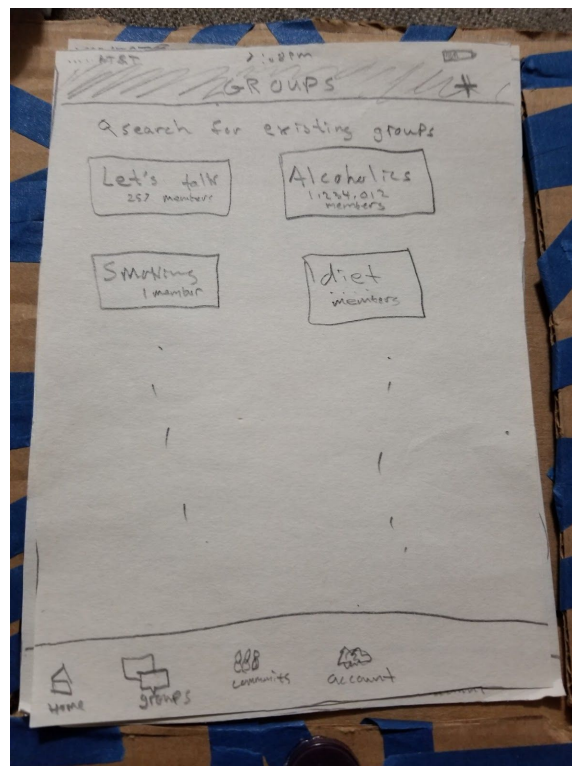 AT&T
GROUPS +
search for existing groups
Let's talk
257 members
Alcoholics
1,234,012
members
Smoking
1 member
diet
members
Home
groups
community
account